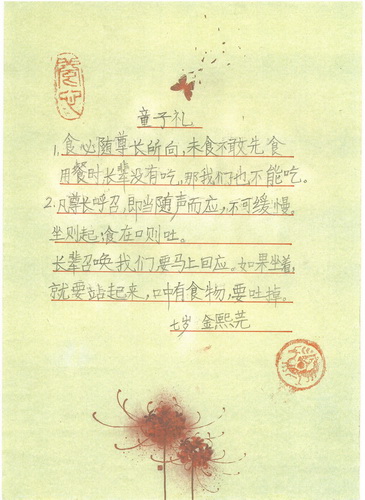 童子礼
1.食必随尊长所向,未食不敢先食
用餐时长辈没有吃,那我们也不能吃。
2.凡尊长呼召,即当随声而应,不可缓慢,
坐则起;食在口则吐。
长辈召唤我们,要马上回应。如果坐着,
就要站起来,口中有食物,要吐掉。
七岁 金熙芫